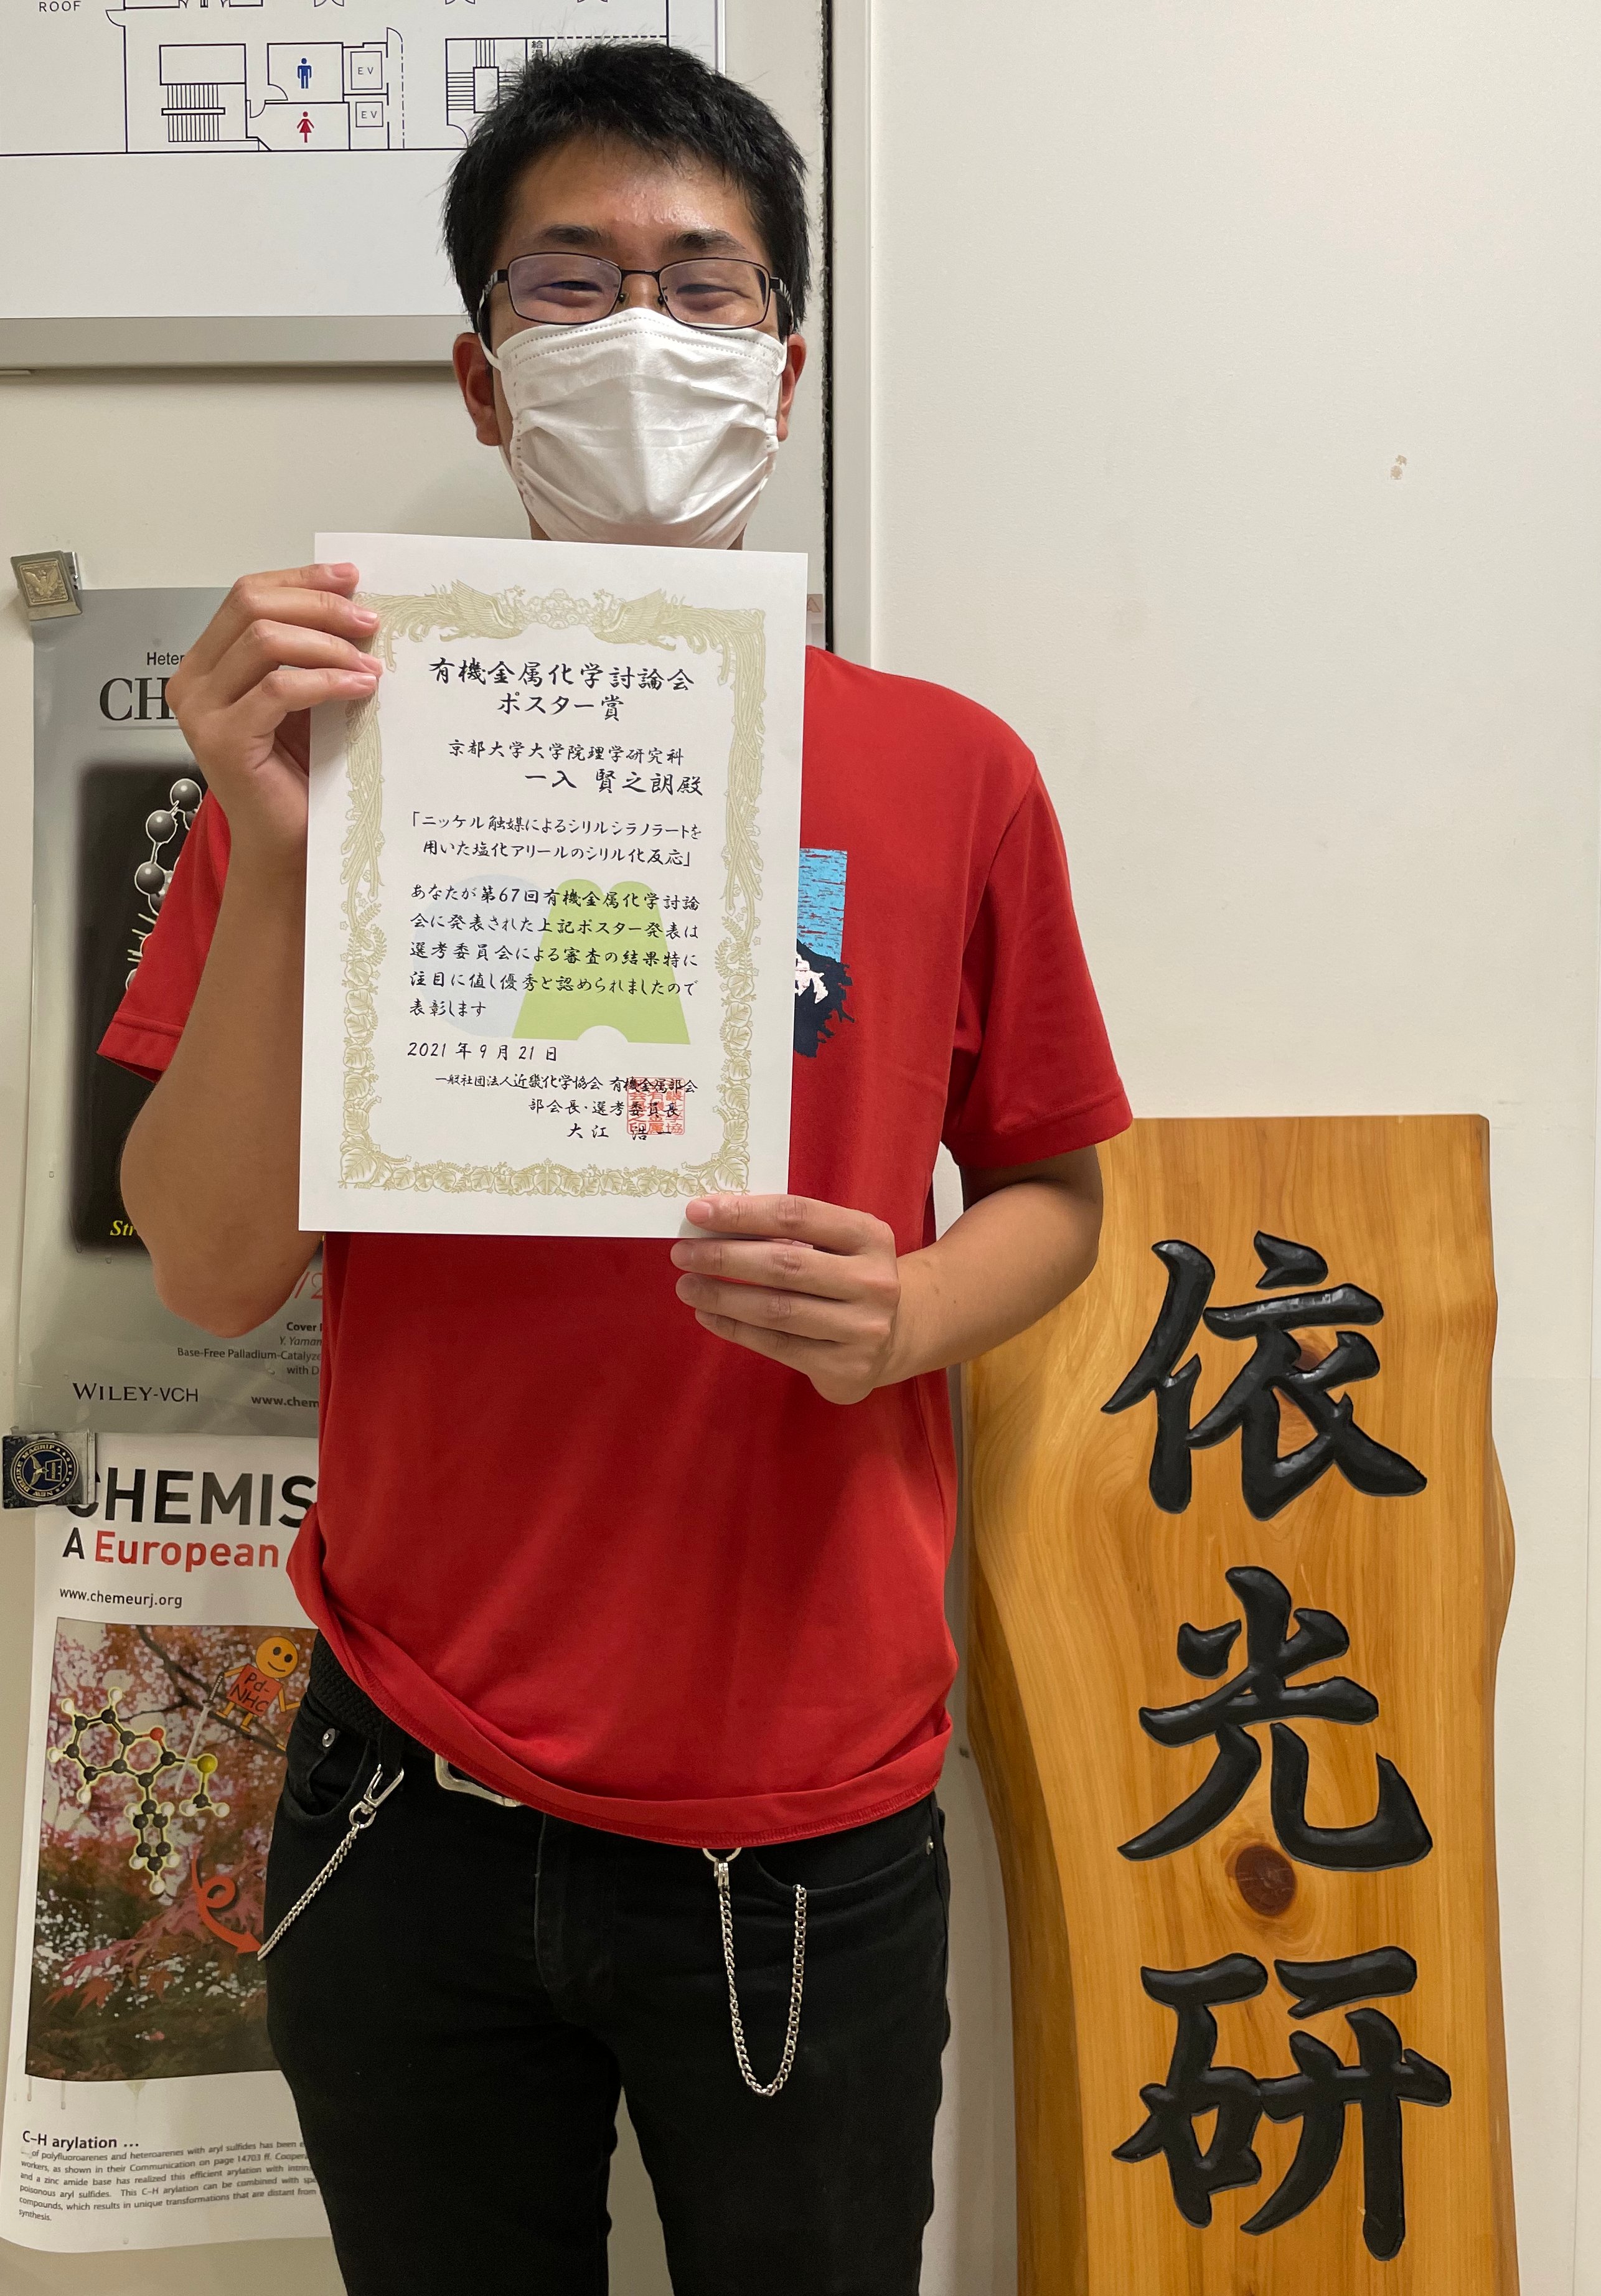 ROOF
EV
EV
有機金属化学討論会
ポスター賞
京都大学大学院理学研究科
一入 賢之朗殿
「ニッケル触媒によるシリルシラノラートを
用いた塩化アリールのシリル化反応」
あなたが第67回有機金属化学討論
会に発表された上記ポスター発表は
選考委員会による審査の結果特に
注目に値し優秀と認められましたので
表彰します
2021年9月21日
一般社団法人近畿化学協会 有機金属部会
部会長・選考委員長
大江 浩一
Cover
Base-Free
with
WILEY-VCH
CHEMIS
A European
www.chemeurj.org
Pd-
NHC
C–H arylation ...
of polyfluoroarenes and heteroarenes with aryl sulfides has been
workers, as shown in their Communication on page 14703 ff.
and a zinc amide base has realized this efficient arylation with
poisonous aryl sulfides. This C–H arylation can be combined with
compounds, which results in unique transformations that are distant from
synthesis.
依光研